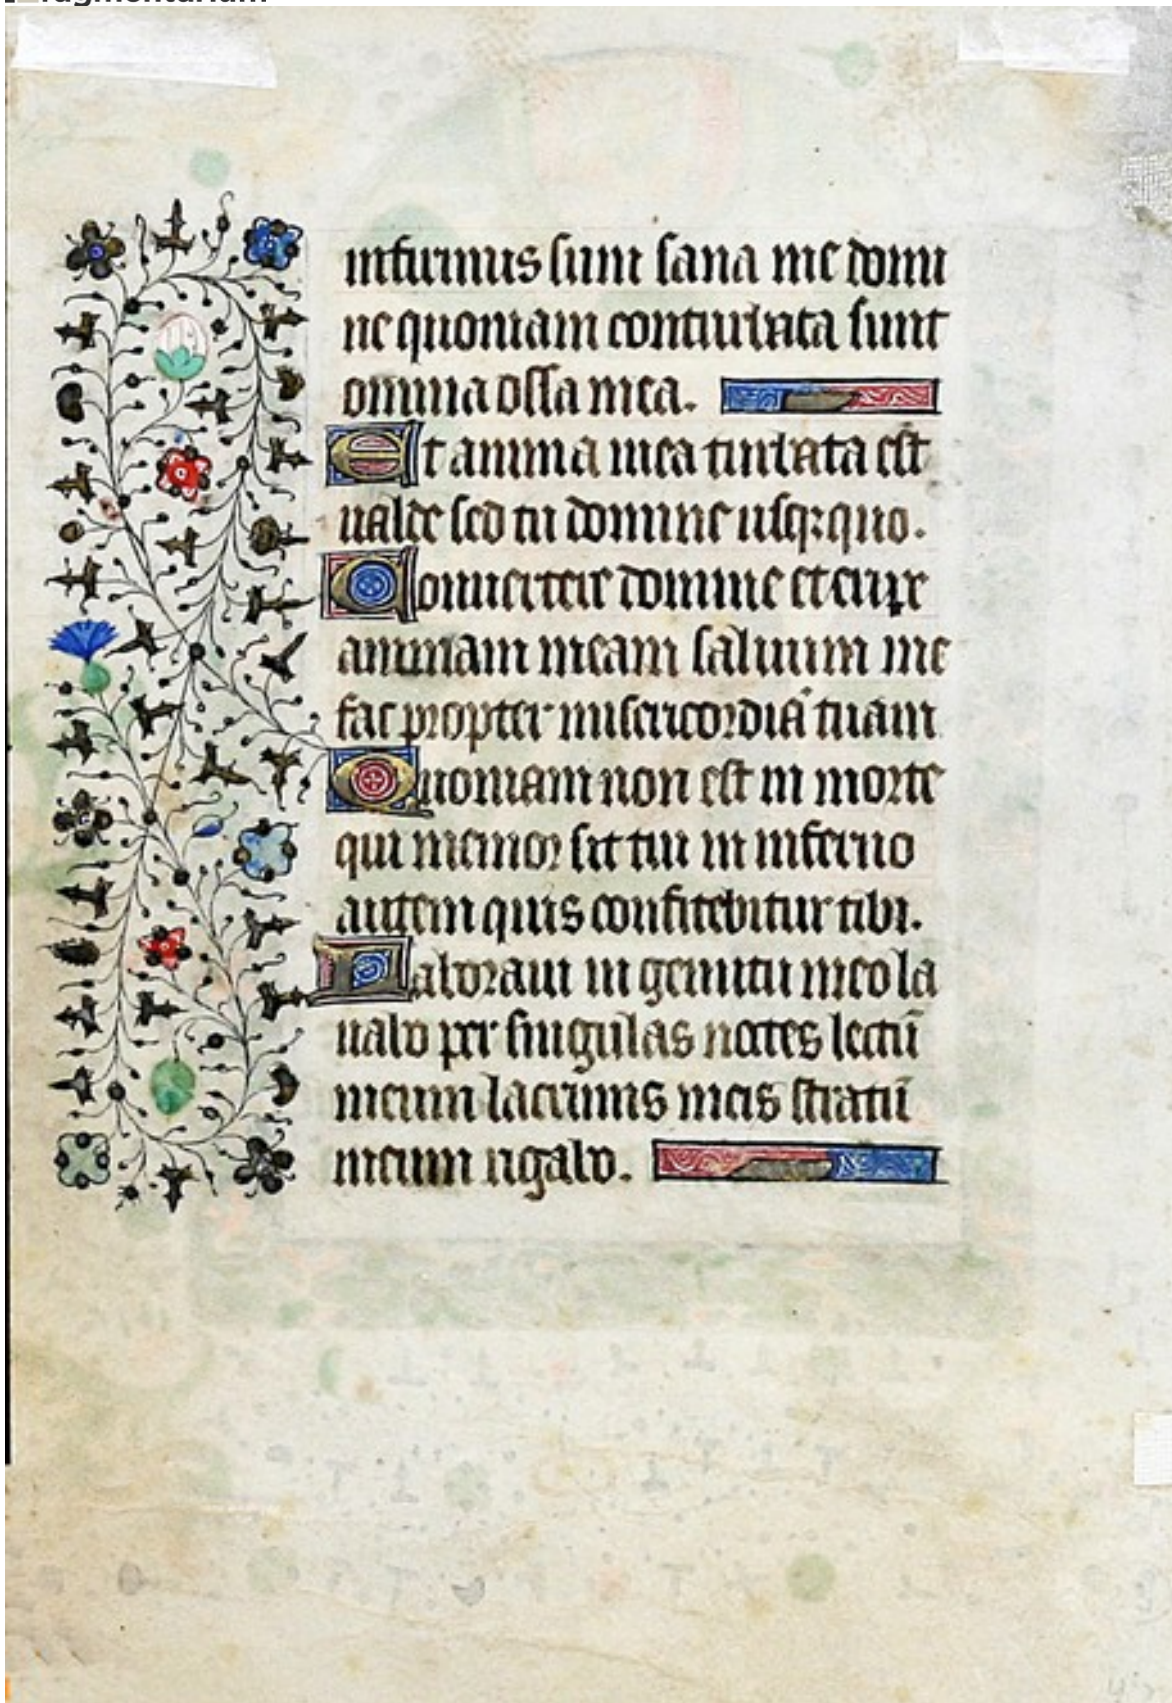 fragmentarium
infirmus sum sana me domi
ne quoniam conturbata sunt
omnia ossa mea.
Et anima mea turbata est
ualde sed tu domine usqꝫquo.
Conuertere domine et eripe
animam meam saluum me
fac propter misericordiā tuam
Quoniam non est in morte
qui memor sit tui in inferno
autem quis confitebitur tibi.
Laboraui in gemitu meo la
uabo per singulas noctes lectū
meum lacrimis meis stratū
meum rigabo.